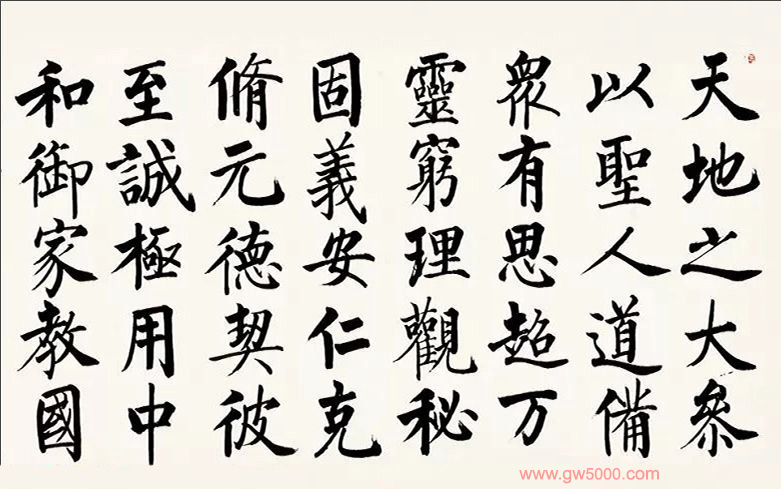 天地之大參
以聖人道備
衆有思超万
靈窮理觀秘
固義安仁克
脩元德契彼
至誠極用中
和御家教國
www.gw5000.com